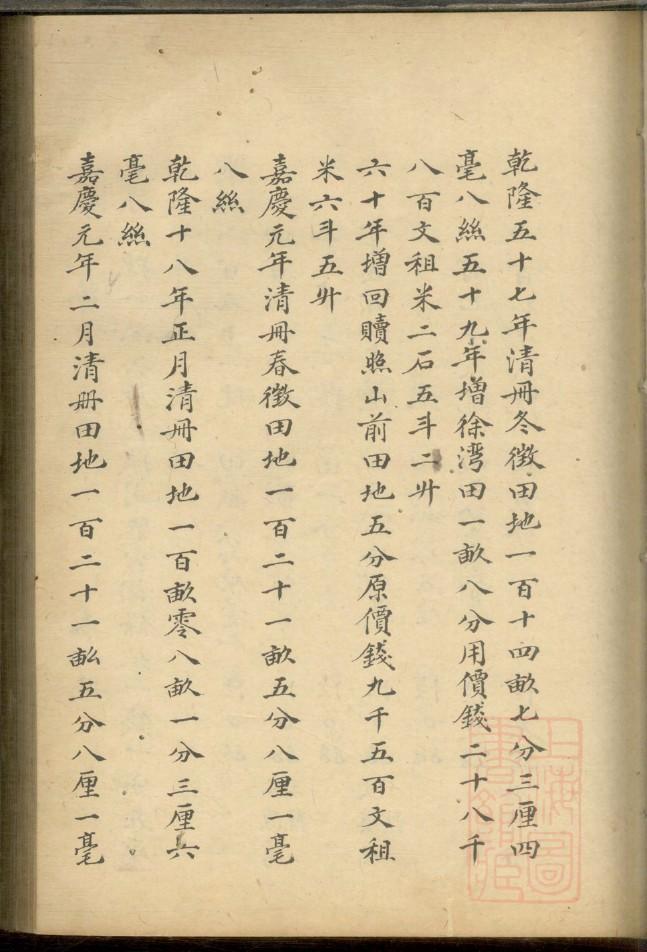 乾隆五十七年清冊冬徵田地一百十四畝七分三厘四
毫八絲五十九年增徐湾田一畝八分用價錢二十八千
八百文祖米二石五斗二升
六十年增回贖照山前田地五分原價錢九千五百文祖
米六斗五升
嘉慶元年清冊春徵田地一百二十一畝五分八厘一毫
八絲
乾隆十八年正月清冊田地一百畝零八畝一分三厘六
毫八絲
嘉慶元年二月清册田地一百二十一畝五分八厘一毫
上海圖
書館藏